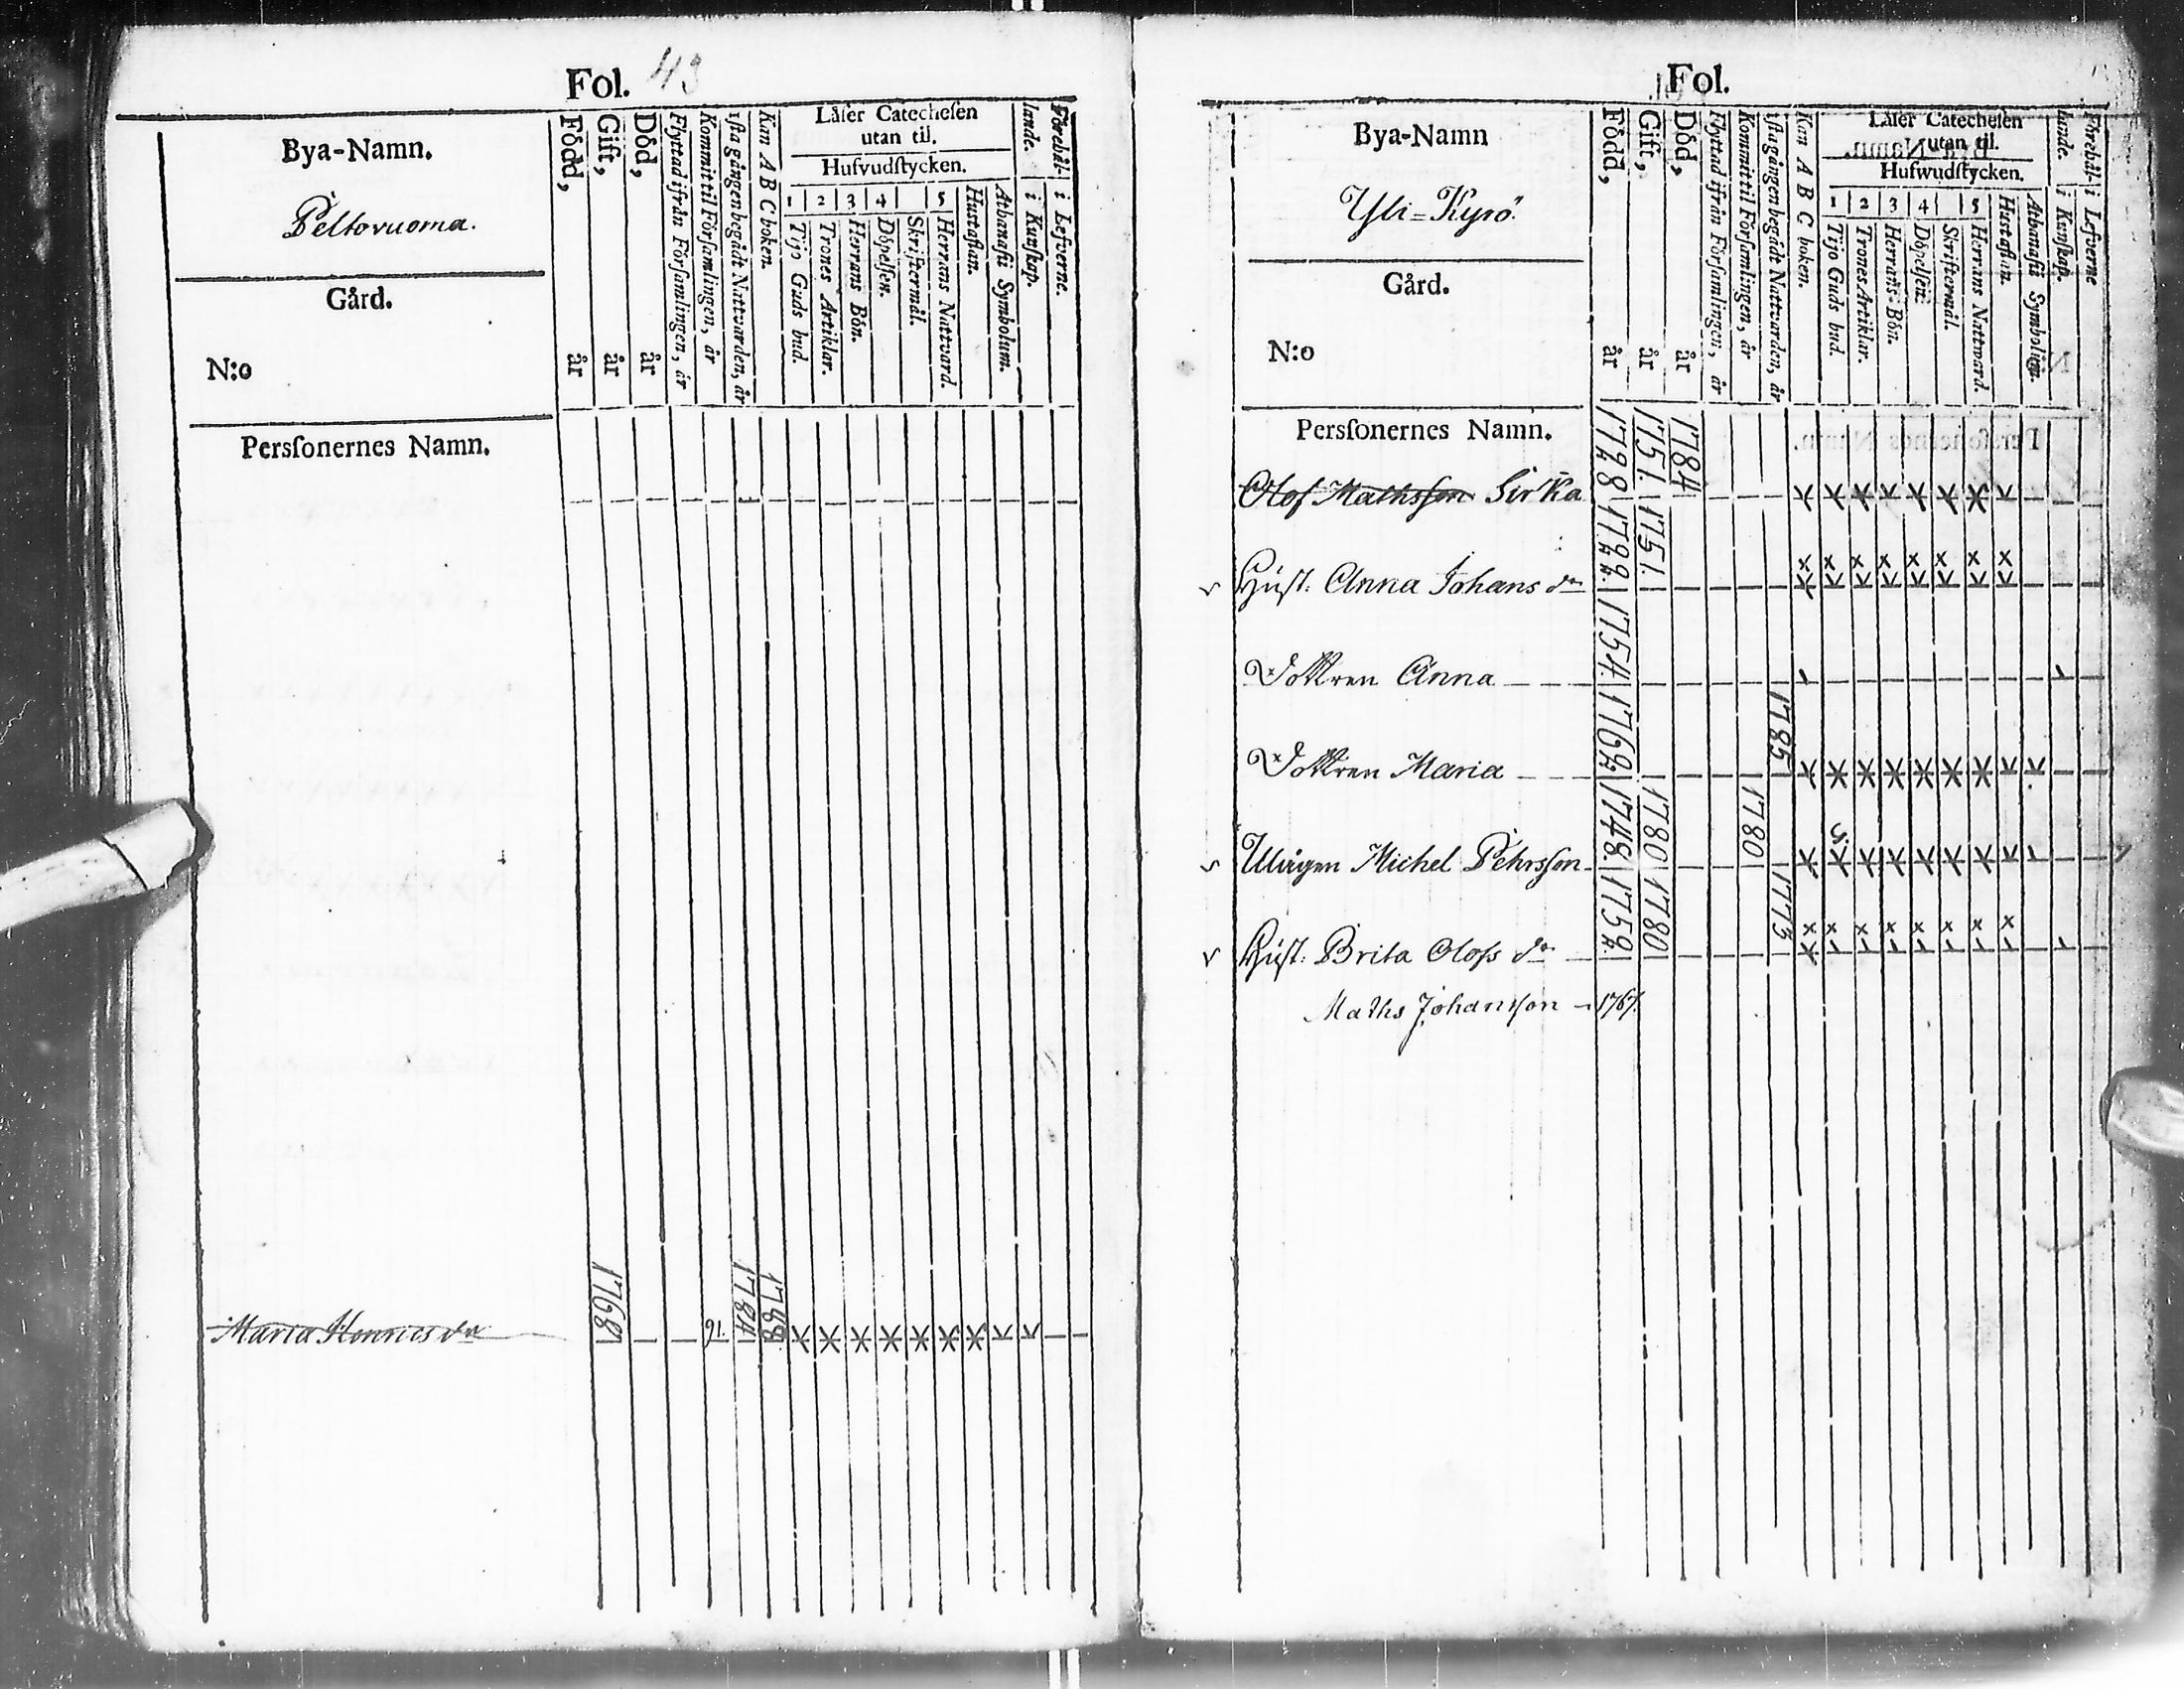 Fol. 43
Bya-Namn.
Peltovuoma.
Gård.
N:o
Persſonernes Namn.
Född, år
Gift, år
Död, år
Flyttad ifrån Förſamlingen, år
Kommit til Förſamlingen, år
1ſta gången begådt Nattvarden, år
Kan A B C boken.
Läſer Catecheſen
utan til.
Hufvudſtycken.
1 2 3 4 5
Tijo Guds bud.
Trones Artiklar.
Herrans Bön.
Döpelſen.
Skriftermål.
Herrans Nattvard.
Hustaflan.
Athanaſii Symbolum.
Förebål-
lande.
i Kunſkap.
i Lefverne.
Maria Henrics dr 1768 91. 1784 1788
Fol.
Bya-Namn
Yli=Kyrö.
Gård.
N:o
Persſonernes Namn.
Född, år
Gift, år
Död, år
Flyttad ifrån Förſamlingen, år
Kommit til Förſamlingen, år
1ſta gången begådt Nattvarden, år
Kan A B C boken.
Läſer Catecheſen
utan til.
Hufwudſtycken.
1 2 3 4 5
Tijo Guds bud.
Trones Artiklar.
Herrans-Bön.
Döpelſen.
Skriftermål.
Herrans Nattward.
Hustaflan.
Athanaſii Symbolum.
Förebål-
lande.
i Kunſkap.
i Lefverne
Olof Mathsſon Sirka 1728 1751. 1784
Huſt. Anna Johans dr 1722. 1751.
Dottren Anna 1754.
Dottren Maria 1762 1785
Mågen Michel Pehrsſon 1748. 1780 1780
Huſt. Brita Olofs dr 1759. 1780 1773
Maths Johansſon 1767.